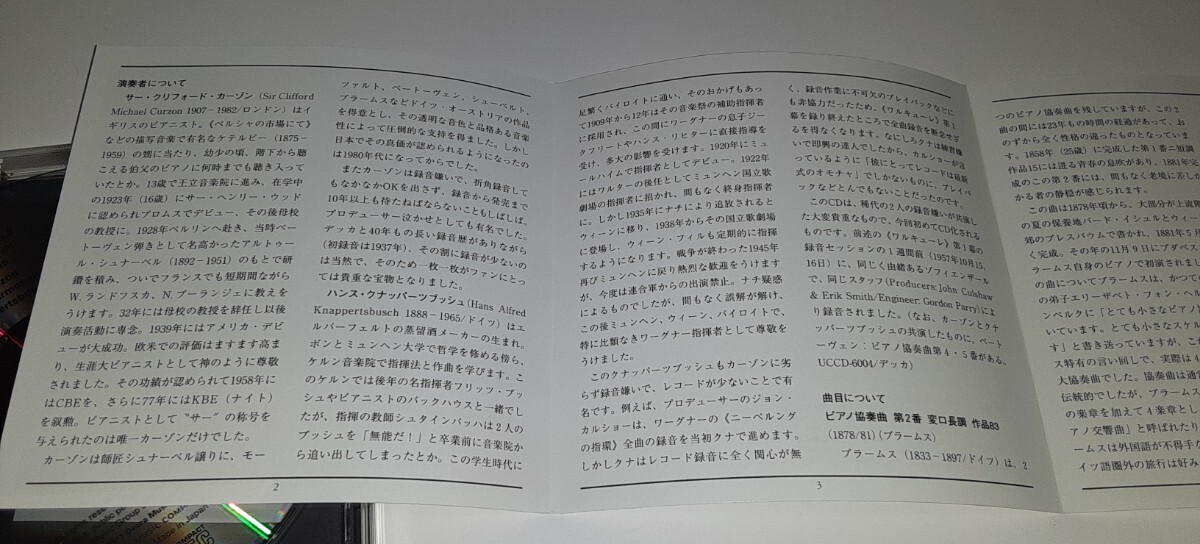 演奏者について
サー・クリフォード・カーゾン（Sir Clifford
Michael Curzon 1907－1982/ロンドン）はイ
ギリスのピアニスト。《ペルシャの市場にて》
などの描写音楽で有名なケテルビー（1875－
1959）の甥に当たり、幼少の頃、階下から聴
こえる伯父のピアノに何時までも聴き入って
いたとか。13歳で王立音楽院に進み、在学中
の1923年（16歳）にサー・ヘンリー・ウッド
に認められプロムスでデビュー、その後母校
の教授に。1928年ベルリンへ赴き、当時ベー
トーヴェン弾きとして名高かったアルトゥー
ル・シュナーベル（1892－1951）のもとで研
鑽を積み、ついでフランスでも短期間ながら
W.ランドフスカ、N.ブーランジェに教えを
うけます。32年には母校の教授を辞任し以後
演奏活動に専念。1939年にはアメリカ・デビ
ューが大成功。欧米での評価はますます高ま
り、生涯大ピアニストとして神のように尊敬
されました。その功績が認められて1958年に
はCBEを、さらに77年にはKBE（ナイト）
を叙勲。ピアニストとして“サー”の称号を
与えられたのは唯一カーゾンだけでした。
カーゾンは師匠シュナーベル譲りに、モー
ツァルト、ベートーヴェン、シューベルト、
ブラームスなどドイツ・オーストリアの作品
を得意とし、その透明な音色と品格ある音楽
性によって圧倒的な支持を得ました。しかし
日本でその真価が認められるようになったの
は1980年代になってからでした。
またカーゾンは録音嫌いで、折角録音して
もなかなかOKを出さず、録音から発売まで
10年以上も待たねばならないこともしばしば。
プロデューサー泣かせとしても有名でした。
デッカと40年もの長い録音歴がありながら
（初録音は1937年）、その割に録音が少ないの
は当然で、そのため一枚一枚がファンにとっ
ては貴重な宝物となりました。
ハンス・クナッパーツブッシュ（Hans Alfred
Knappertsbusch 1888－1965/ドイツ）はエ
ルバーフェルトの蒸留酒メーカーの生まれ。
ボンとミュンヘン大学で哲学を修める傍ら、
ケルン音楽院で指揮法と作曲を学びます。こ
のケルンでは後年の名指揮者フリッツ・ブッ
シュやピアニストのバックハウスと一緒でし
たが、指揮の教師シュタインバッハは２人の
ブッシュを「無能だ！」と卒業前に音楽院か
ら追い出してしまったとか。この学生時代に
2
足繁くバイロイトに通い、そのおかげもあっ
て1909年から12年はその音楽祭の補助指揮者
に採用され、この間にワーグナーの息子ジー
クフリートやハンス・リヒターに直接指導を
受け、多大の影響を受けます。1920年にミュ
ールハイムで指揮者としてデビュー。1922年
にはワルターの後任としてミュンヘン国立歌
劇場の指揮者に招かれ、間もなく終身指揮者
に。しかし1935年にナチにより追放されると
ウィーンに移り、1938年からその国立歌劇場
に登場し、ウィーン・フィルも定期的に指揮
するようになります。戦争が終わった1945年
再びミュンヘンに戻り熱烈な歓迎をうけます
が、今度は連合軍からの出演禁止。ナチ疑惑
によるものでしたが、間もなく誤解が解け、
この後ミュンヘン、ウィーン、バイロイトで、
特に比類なきワーグナー指揮者として尊敬を
うけました。
このクナッパーツブッシュもカーゾンに劣
らず録音嫌いで、レコードが少ないことで有
名です。例えば、プロデューサーのジョン・
カルショーは、ワーグナーの《ニーベルング
の指環》全曲の録音を当初クナで進めます。
しかしクナはレコード録音に全く関心が無
く、録音作業に不可欠のプレイバックなどに
も非協力だったため、《ワルキューレ》第１
幕を録り終えたところで全曲録音を断念せざ
るを得なくなります。なにしろクナは練習嫌
いで即興の達人でしたから、カルショーが言
っているように「彼にとってレコードは最新
式のオモチャ」でしかないものに、プレイバ
ックなどとんでもないことだったのです。
このCDは、稀代の２人の録音嫌いが共演し
た大変貴重なもので、今回初めてCD化される
ものです。前述の《ワルキューレ》第１幕の
録音セッションの１週間前（1957年10月15、
16日）に、同じく由緒あるゾフィエンザール
で、同じスタッフ（Producers: John Culshaw
& Erik Smith/Engineer: Gordon Parry）によ
り録音されました。（なお、カーゾンとクナ
ッパーツブッシュの共演したものに、ベート
ーヴェン：ピアノ協奏曲第４・５番がある。
UCCD-6004/デッカ）
曲目について
ピアノ協奏曲 第２番 変ロ長調 作品83
（1878/81）（ブラームス）
ブラームス（1833－1897/ドイツ）は、２
3
つのピアノ協奏曲を残していますが、この２
曲の間には23年もの時の経過があって、お
のずから全く性格の違ったものとなっていま
す。1858年（25歳）に完成した第１番ニ短調
作品15には迸る青春の息吹があり、1881年完
成のこの第２番には、間もなく老境に差しか
かる者の静穏が感じられます。
この曲は1878年頃から、大部分が上流階
の夏の保養地バート・イシュルとウィー
郊のプレスバウムで書かれ、1881年５月
く完成。その年の11月９日にブダペス
ラームス自身のピアノで初演されまし
の曲についてブラームスは、かつての
の弟子エリーザベト・フォン・ヘル
ンベルクに「とても小さなピアノ
いています。とても小さなスケル
す」と書き送っていますが、こ
ス特有の言い回しで、実際は
大協奏曲でした。協奏曲は通常
伝統的でしたが、ブラームス
の楽章を加えて４楽章とし
アノ交響曲」と呼ばれたり
ームスは外国語が不得手
イツ語圏外の旅行は好み
Made in Japan